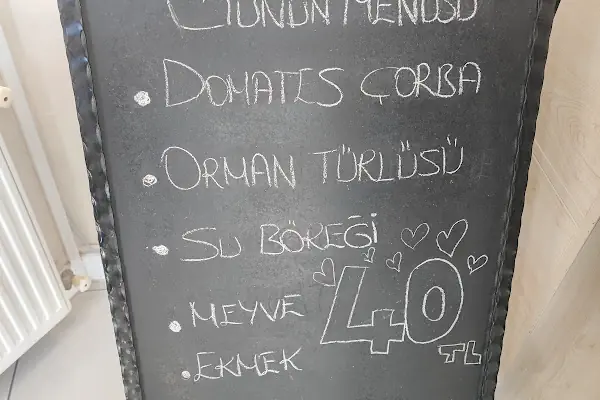 GÜNÜN MENÜSÜ
• DOMATES ÇORBA
• ORMAN TÜRLÜSÜ
• SU BÖREĞİ
• MEYVE
• EKMEK
40
TL